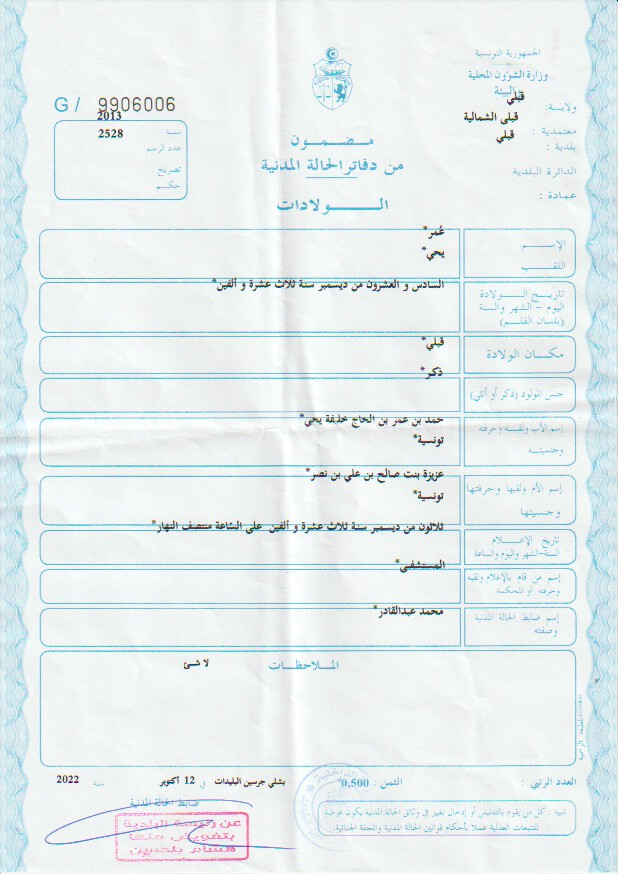 الجمهورية التونسية
وزارة الشؤون المحلية
والبيئة
ولاية: قبلي
معتمدية : قبلى الشمالية
بلدية : قبلي
الدائرة البلدية
عمادة :
G / 9906006
سنة 2013
عدد الرسم 2528
تصريح
حكم
مضمون
من دفاتر الحالة المدنية
الولادات
الإسم
عُمر*
اللقب
يحي*
تاريخ الولادة
اليوم - الشهر والسنة
(بلسان القلم)
السادس و العشرون من ديسمبر سنة ثلاث عشرة و ألفين*
مكان الولادة
قبلي*
جنس المولود (ذكر أو أنثى)
ذكر*
إسم الأب ولقبه وحرفته
وجنسيته
حمد بن عمر بن الحاج خليفة يحي*
تونسية*
إسم الأم ولقبها وحرفتها
وجنسيتها
عزيزة بنت صالح بن علي بن نصر*
تونسية*
تاريخ الإعلام
السنة-الشهر واليوم والساعة
ثلاثون من ديسمبر سنة ثلاث عشرة و ألفين على السّاعة منتصف النهار*
إسم من قام بالإعلام ولقبه
وحرفته أو المحكمة
المستشفى*
إسم ضابط الحالة المدنية
وصفته
محمد عبدالقادر*
الملاحظات
لا شئ
المطبعة الرسمية
العدد الرتبي :
الثمن : 0,500*
بشلي جرسين البليدات في 12 أكتوبر سنة 2022
تنبيه : كل من يقوم بالتدليس أو إدخال تغيير في وثائق الحالة المدنية يكون عرضة
للتتبعات العدلية عملا بأحكام قوانين الحالة المدنية والمجلة الجنائية.
ضابط الحالة المدنية
عن رئيسة البلدية
بتفويض منها